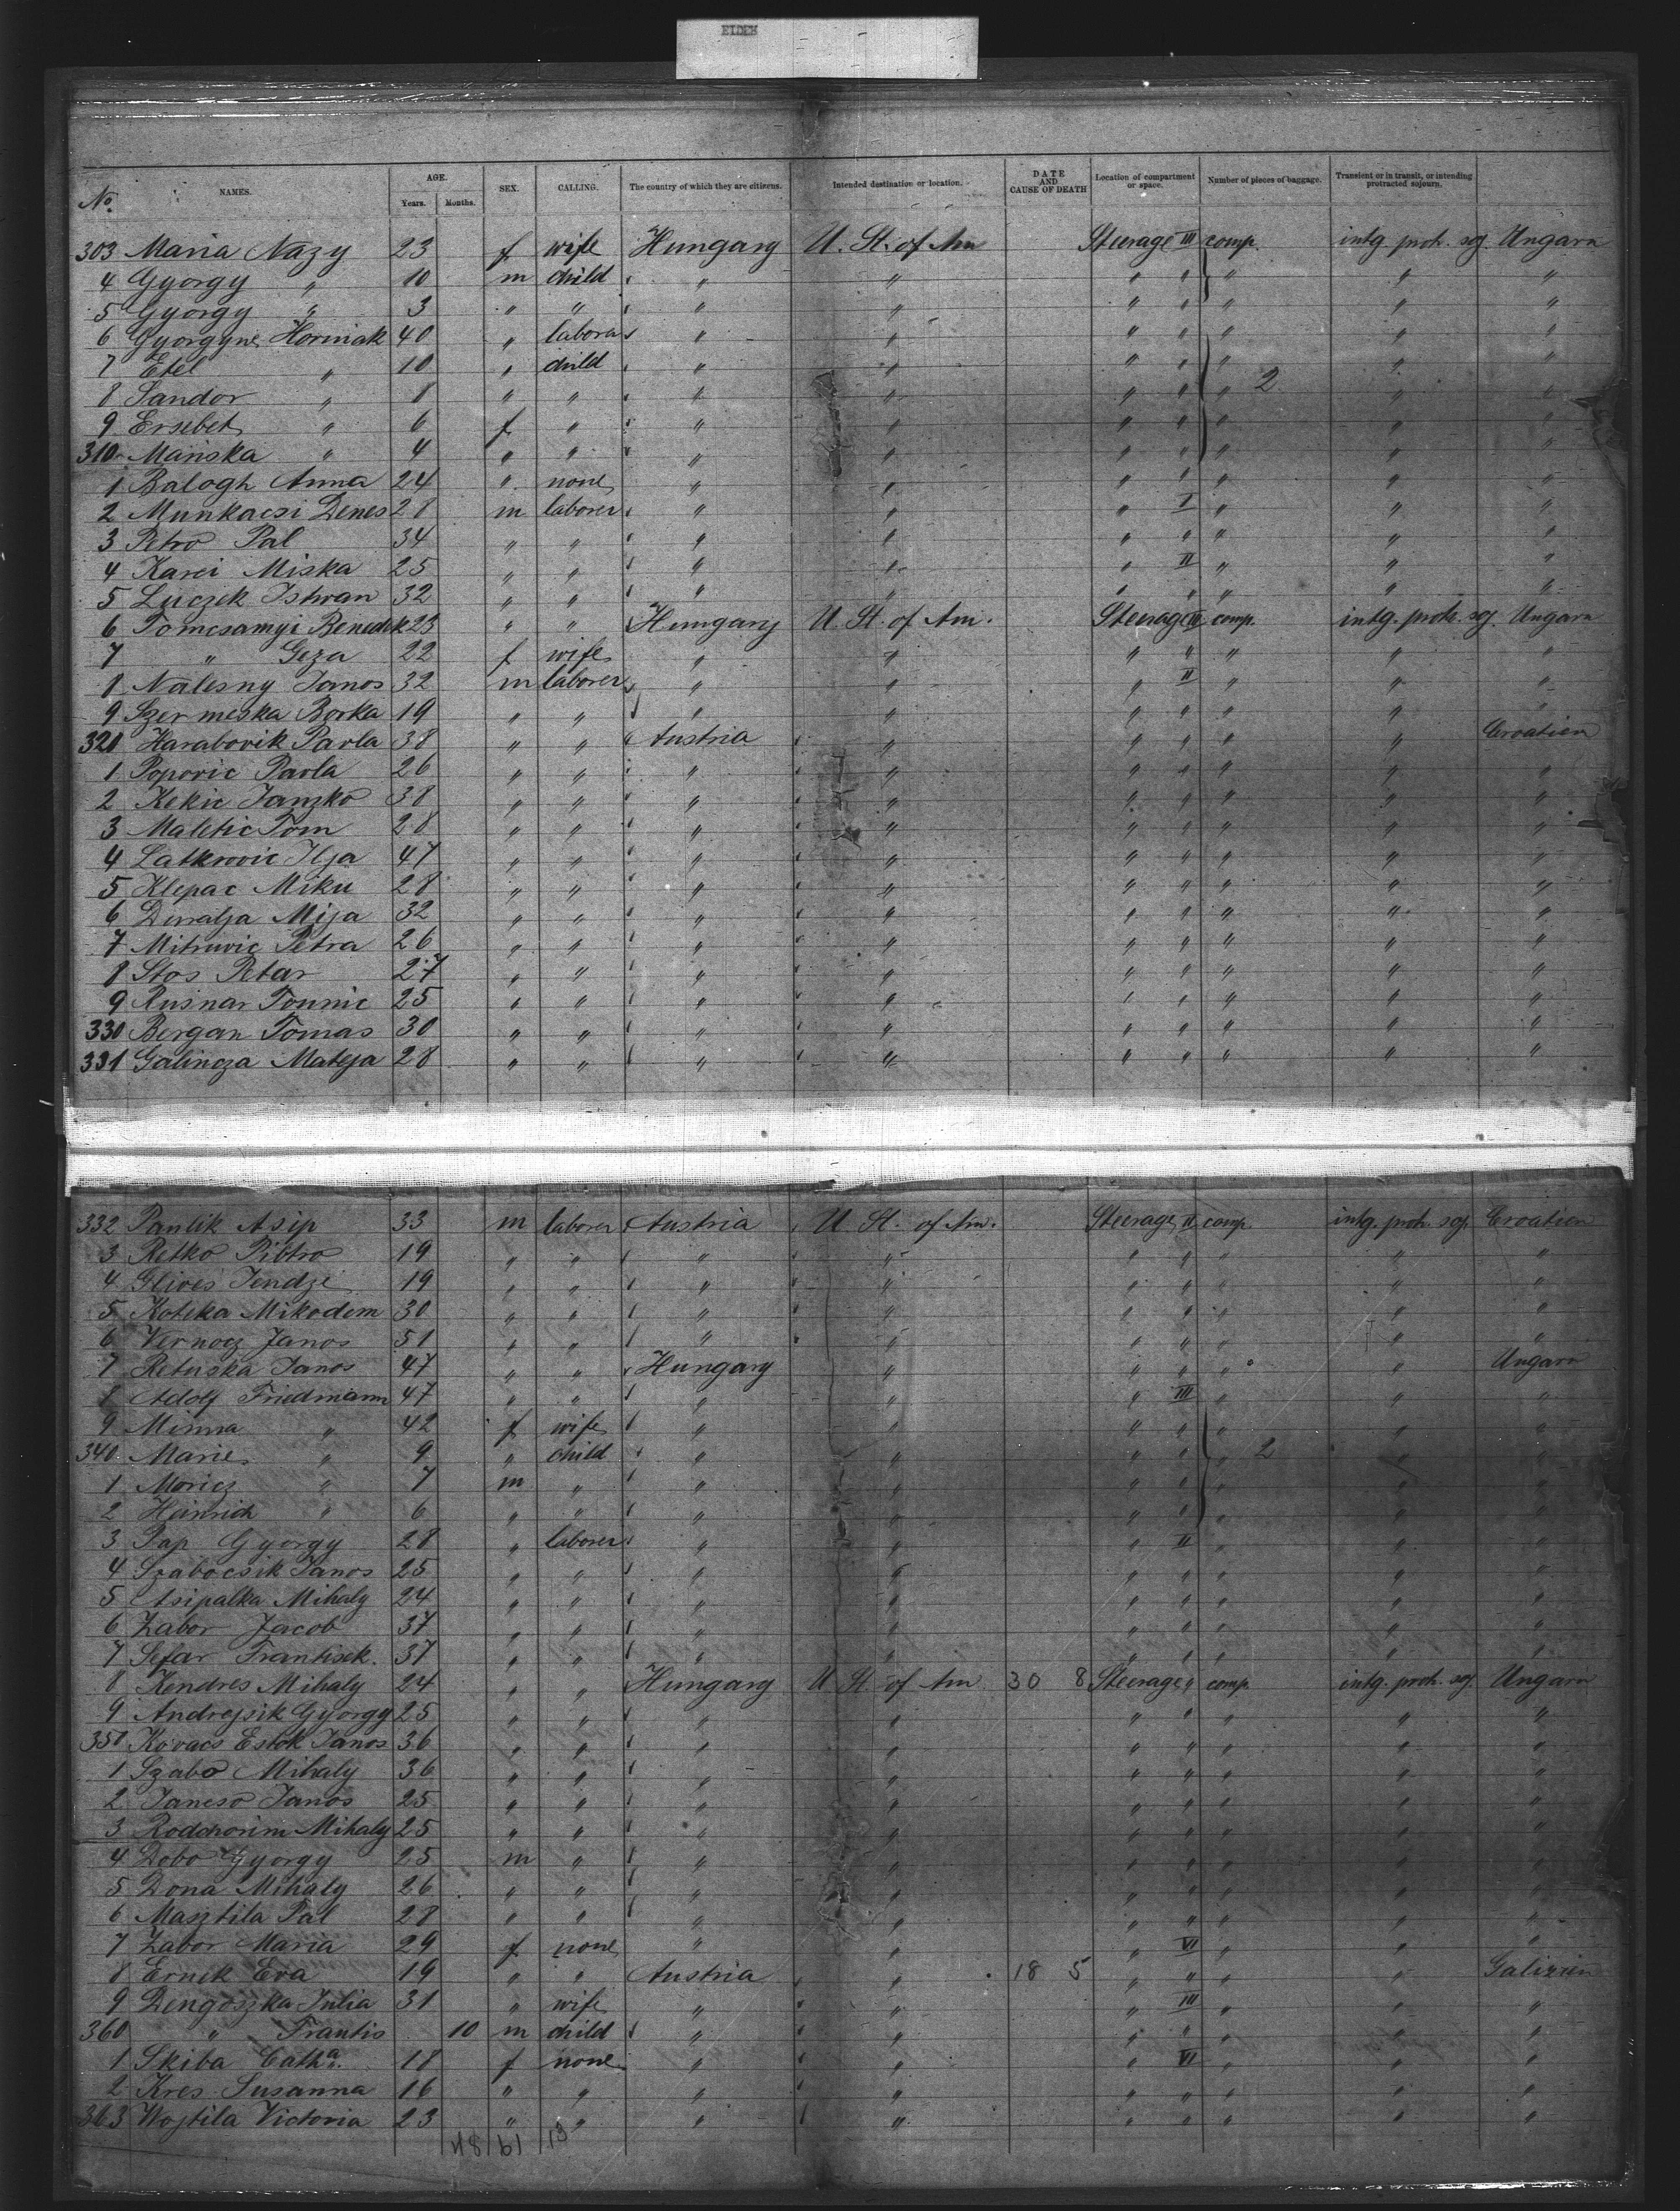 No. NAMES. AGE. Years. Months. SEX. CALLING. The country of which they are citizens. Intended destination or location. DATE AND CAUSE OF DEATH Location of compartment or space. Number of pieces of baggage. Transient or in transit, or intending protracted sojourn.
303 Maria Nazy 23 f wife Hungary U. St. of Am Steerage III comp. intg. protr. soj. Ungarn
4 Gyorgy " 10 m child " " " " " " "
5 Gyorgy " 3 " " " " " " " " "
6 Gyorgyne Horniak 40 " laborer " " " " " " "
7 Etel " 10 " child " " " " " " "
8 Sandor " 8 " " " " " " " 2 " "
9 Ersebet " 6 f " " " " " " " "
310 Mariska " 4 " " " " " " " " "
1 Balogh Anna 24 " none " " " " " " "
2 Munkacsi Denes 28 m laborer " " " I " " "
3 Petro Pal 34 " " " " " " " " "
4 Karei Miska 25 " " " " " II " " "
5 Luczek Istvan 32 " " " " " " " " "
6 Tomcsamyi Benedek 23 " " Hungary U. St. of Am. Steerage comp. intg. protr. soj. Ungarn
7 " Geza 22 f wife " " " " " " "
8 Nalesny Janos 32 m laborer " " " II " " "
9 Szermeska Borka 19 " " " " " " " " "
320 Harabovik Pavla 38 " " Austria " " " " " Croatien
1 Popovic Pavla 26 " " " " " " " " "
2 Kekic Janzko 38 " " " " " " " " "
3 Maletic Tom 28 " " " " " " " " "
4 Latkovic Ilja 47 " " " " " " " " "
5 Klepac Miku 28 " " " " " " " " "
6 Mija 32 " " " " " " " " "
7 Mitruvic Petra 26 " " " " " " " " "
8 Stos Petar 27 " " " " " " " " "
9 Rusnar Tounic 25 " " " " " " " " "
330 Bergan Tomas 30 " " " " " " " " "
331 Galincza Mateja 28 " " " " " " " " "
332 Pavlik Asip 33 m laborer Austria U. St. of Am. Steerage II comp. intg. protr. soj. Croatien
3 Retko Pibtro 19 " " " " " " " " "
4 Glives Jendzi 19 " " " " " " " " "
5 Koteka Mikodem 30 " " " " " " " " "
6 Vernocz Janos 51 " " " " " " " " "
7 Retuska Janos 47 " " Hungary " " " " " Ungarn
8 Adolf Friedmann 47 " " " " " III " " "
9 Minna " 42 f wife " " " " " " "
340 Marie " 9 " child " " " " " 2 " "
1 Moricz " 7 m " " " " " " "
2 Heinrich " 6 " " " " " " " " "
3 Pap Gyorgy 28 " laborer " " " II " " "
4 Szabocsik Janos 25 " " " " " " " " "
5 Asipalka Mihaly 24 " " " " " " " " "
6 Zabor Jacob 37 " " " " " " " " "
7 Sefar Frantisek. 37 " " " " " " " " "
8 Kendres Mihaly 24 " " Hungary U. St. of Am 30 8 Steerage " comp intg. protr. soj. Ungarn
9 Andrejsik Gyorgy 25 " " " " " " " " "
350 Kovacs Estok Janos 36 " " " " " " " " "
1 Szabo Mihaly 36 " " " " " " " " "
2 Jancso Janos 25 " " " " " " " " "
3 Rodchorim Mihaly 25 " " " " " " " " "
4 Dobo Gyorgy 25 m " " " " " " " "
5 Dona Mihaly 26 " " " " " " " " "
6 Masztila Pal 28 " " " " " " " " "
7 Zabor Maria 29 f none " " " VI " " "
8 Ernek Eva 19 " " Austria " 18 5 " " " " Galizien
9 Dengoszka Julia 31 " wife " " " III " " "
360 " Frantis 10 m child " " " " " " "
1 Skiba Catha. 18 f none " " " VI " " "
2 Kres Susanna 16 " " " " " " " " "
363 Wojtila Victoria 23 " " " " " " " " "
48 61 13